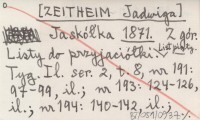 [ZEITHEIM Jadwiga]
Jaskółka 1871. Z gór.
Listy do przyjaciółki.
Tyg. Il. ser. 2, t. 8, nr 191:
97-99, il.; nr 193: 124-126,
il.; nr 194: 140-142, il.;